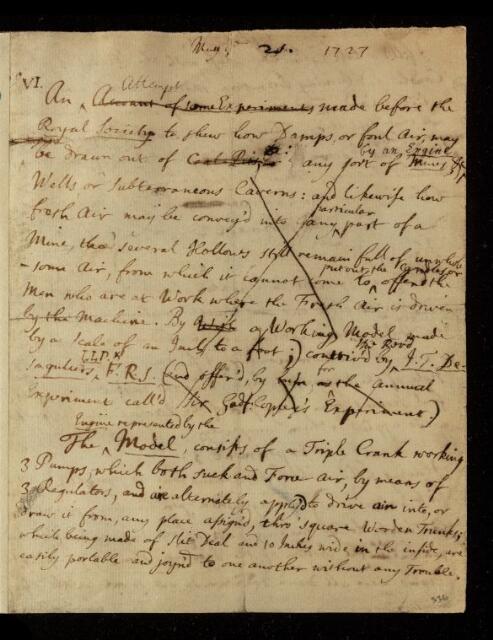 21. 1727
VI.
Attempt
An Account of some Experiments made before the
Royal Society to shew how Damps, or foul Air, may
by an Engine
be drawn out of any sort of Mines
Wells or Subterraneous Caverns: and likewise how
particular
fresh Air may be convey'd into any part of a
Mine, tho' several Hollows still remain full of unwhole
put out the Candles or
-some Air, from which it cannot come to offend the
Men who are at Work where the Fresh Air is driven
by the Machine. By a Working Model made
the Revd
by a Scale of an Inch to a foot; contrived by J. T. De-
LL.D.
saguliers, F.R.S. (and offer'd, by for as the Annual
Experiment call'd Sir Godf. Copley's Experiment.)
Engine represented by the
The Model, consists of a Triple Crank working
3 Pumps, which both suck and Force Air, by means of
3 Regulators, and are alternately apply'd to drive air into, or
draw it from, any place assign'd, thro' square Wooden Trunks;
which being made of slit Deal and 10 Inches wide in the inside, are
easily portable and joyn'd to one another without any Trouble.